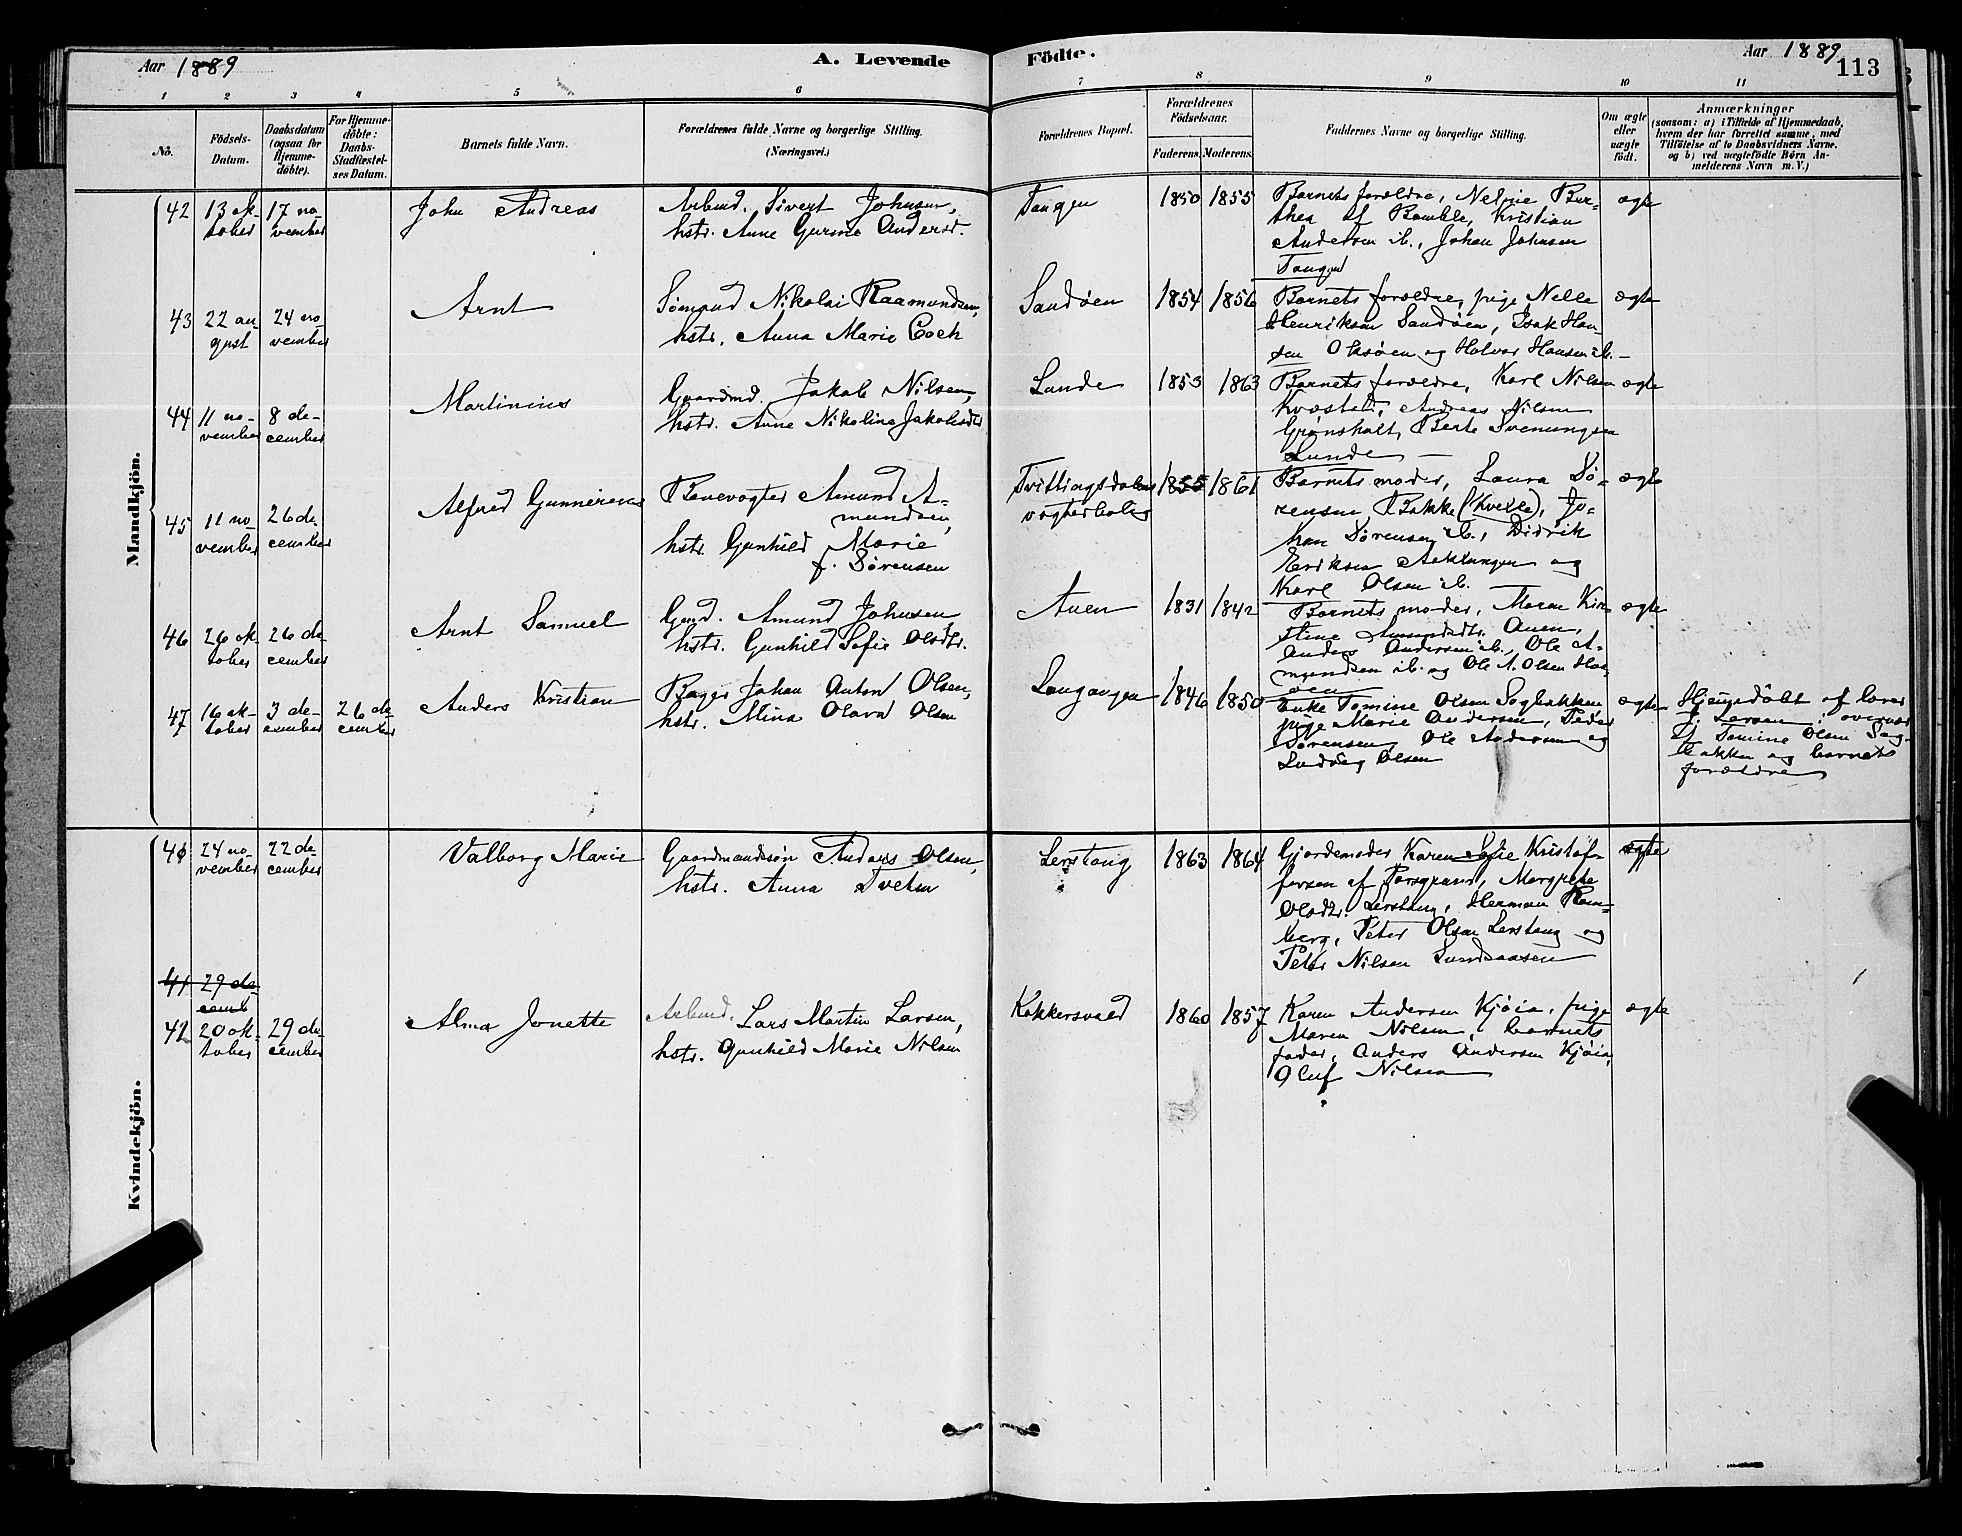 Aar 1889
A. Levende
Födte.
Aar 1889
113
1 2 3 4 5 6 7 8 9 10 11
No.
Födsels-
Datum.
Daabsdatum
(ogsaa for
Hjemme-
döbte).
For Hjemme-
döbte:
Daabs-
Stadfæstel-
ses Datum.
Barnets fulde Navn.
Forældrenes fulde Navne og borgerlige Stilling.
(Næringsvei.)
Forældrenes Bopæl.
Forældrenes
Födselsaar.
Faderens. Moderens.
Faddernes Navne og borgerlige Stilling.
Om ægte
eller
uægte
födt.
Anmærkninger
(saasom: a) i Tilfælde af Hjemmedaab,
hvem der har forrettet samme, med
Tilföielse af to Daabsvidners Navne,
og b) ved uægtefödte Börn An-
melderens Navn m. V.)
Mandkjön.
42
13 ok-
tober
17 no-
vember
John Andreas
Arbmd. Sivert Johnsen,
hstr. Anne Gurine Andersd.
Tangen
1850 1855
Barnets forældre, Neline Ber-
thea af Bamble, Kristian
Andersen ib., Johan Johnsen
Tangen
ægte
43
22 au-
gust
24 no-
vember
Arnt
Sömand Nikolai Raamundsen,
hstr. Anna Marie Coch
Sandöen
1854 1856
Barnets forældre, pige Nelle
Henriksen Sandöen, Isak Han-
sen Oksöen og Halvor Hansen ib. –
ægte
44
11 no-
vember
8 de-
cember
Martinius
Gaardmd. Jakob Nilsen,
hstr. Anne Nikoline Jakobsdtr
Lunde
1853 1863
Barnets forældre, Karl Nilsen
Kvæstad, Andreas Nilsen
Grönsholt, Berte Svenungsen
Lunde –
ægte
45
11 no-
vember
26 de-
cember
Alfred Gunnerius
Banevogter Amund A-
mundsen,
hstr. Gunhild Marie
f. Sörensen
Tvittingsdalens
vogterbolig
1855 1861
Barnets moder, Laura Sö-
rensen Bakke (Kvelle), Jo-
han Sörensen ib., Didrik
Eriksen Aaklungen og
Karl Olsen ib.
ægte
46
26 ok-
tober
26 de-
cember
Arnt Samuel
Gmd. Amund Johnsen
hstr. Gunhild Sofie Olsdtr.
Auen
1831 1842
Barnets moder, Maren Kir-
stine Amundsdtr. Auen,
Anders Andersen ib., Ole A-
mundsen ib. og Ole A. Olsen
ægte
47
16 ok-
tober
3 de-
cember
26 de-
cember
Anders Kristian
Bager Johan Anton Olsen,
hstr. Mina Olava Olsen
Langangen
1846 1850
Enke Tomine Olsen Sagbakken
pige Marie Andersen, Peder
Sörensen, Ole Andersen og
Ludvig Olsen
ægte
Hjemmedöbt af lærer
J. Larsen i overvær
af Tomine Olsen Sag-
bakken og barnets
forældre
Kvindekjön.
40
24 no-
vember
22 de-
cember
Valborg Marie
Gaardmandssön Anders Olsen,
hstr. Anna Tvetan
Lerstang
1863 1864
Gjordemoder Karen Sofie Kristof-
fersen af Porsgrund, Margrethe
Olsdtr. Lerstang, Herman Ram-
berg, Peter Olsen Lerstang og
Peter Nilsen Sundsaasen
ægte
41 29 de-
cemb
42
20 ok-
tober
29 de-
cember
Alma Jonette
Arbmd. Lars Martin Larsen,
hstr. Gunhild Marie Nilsen
Kokkersvold
1860 1857
Karen Andersen Kjöia, pige
Maren Nilsen, barnets
fader, Anders Andersen Kjöia,
Oluf Nilsen
ægte